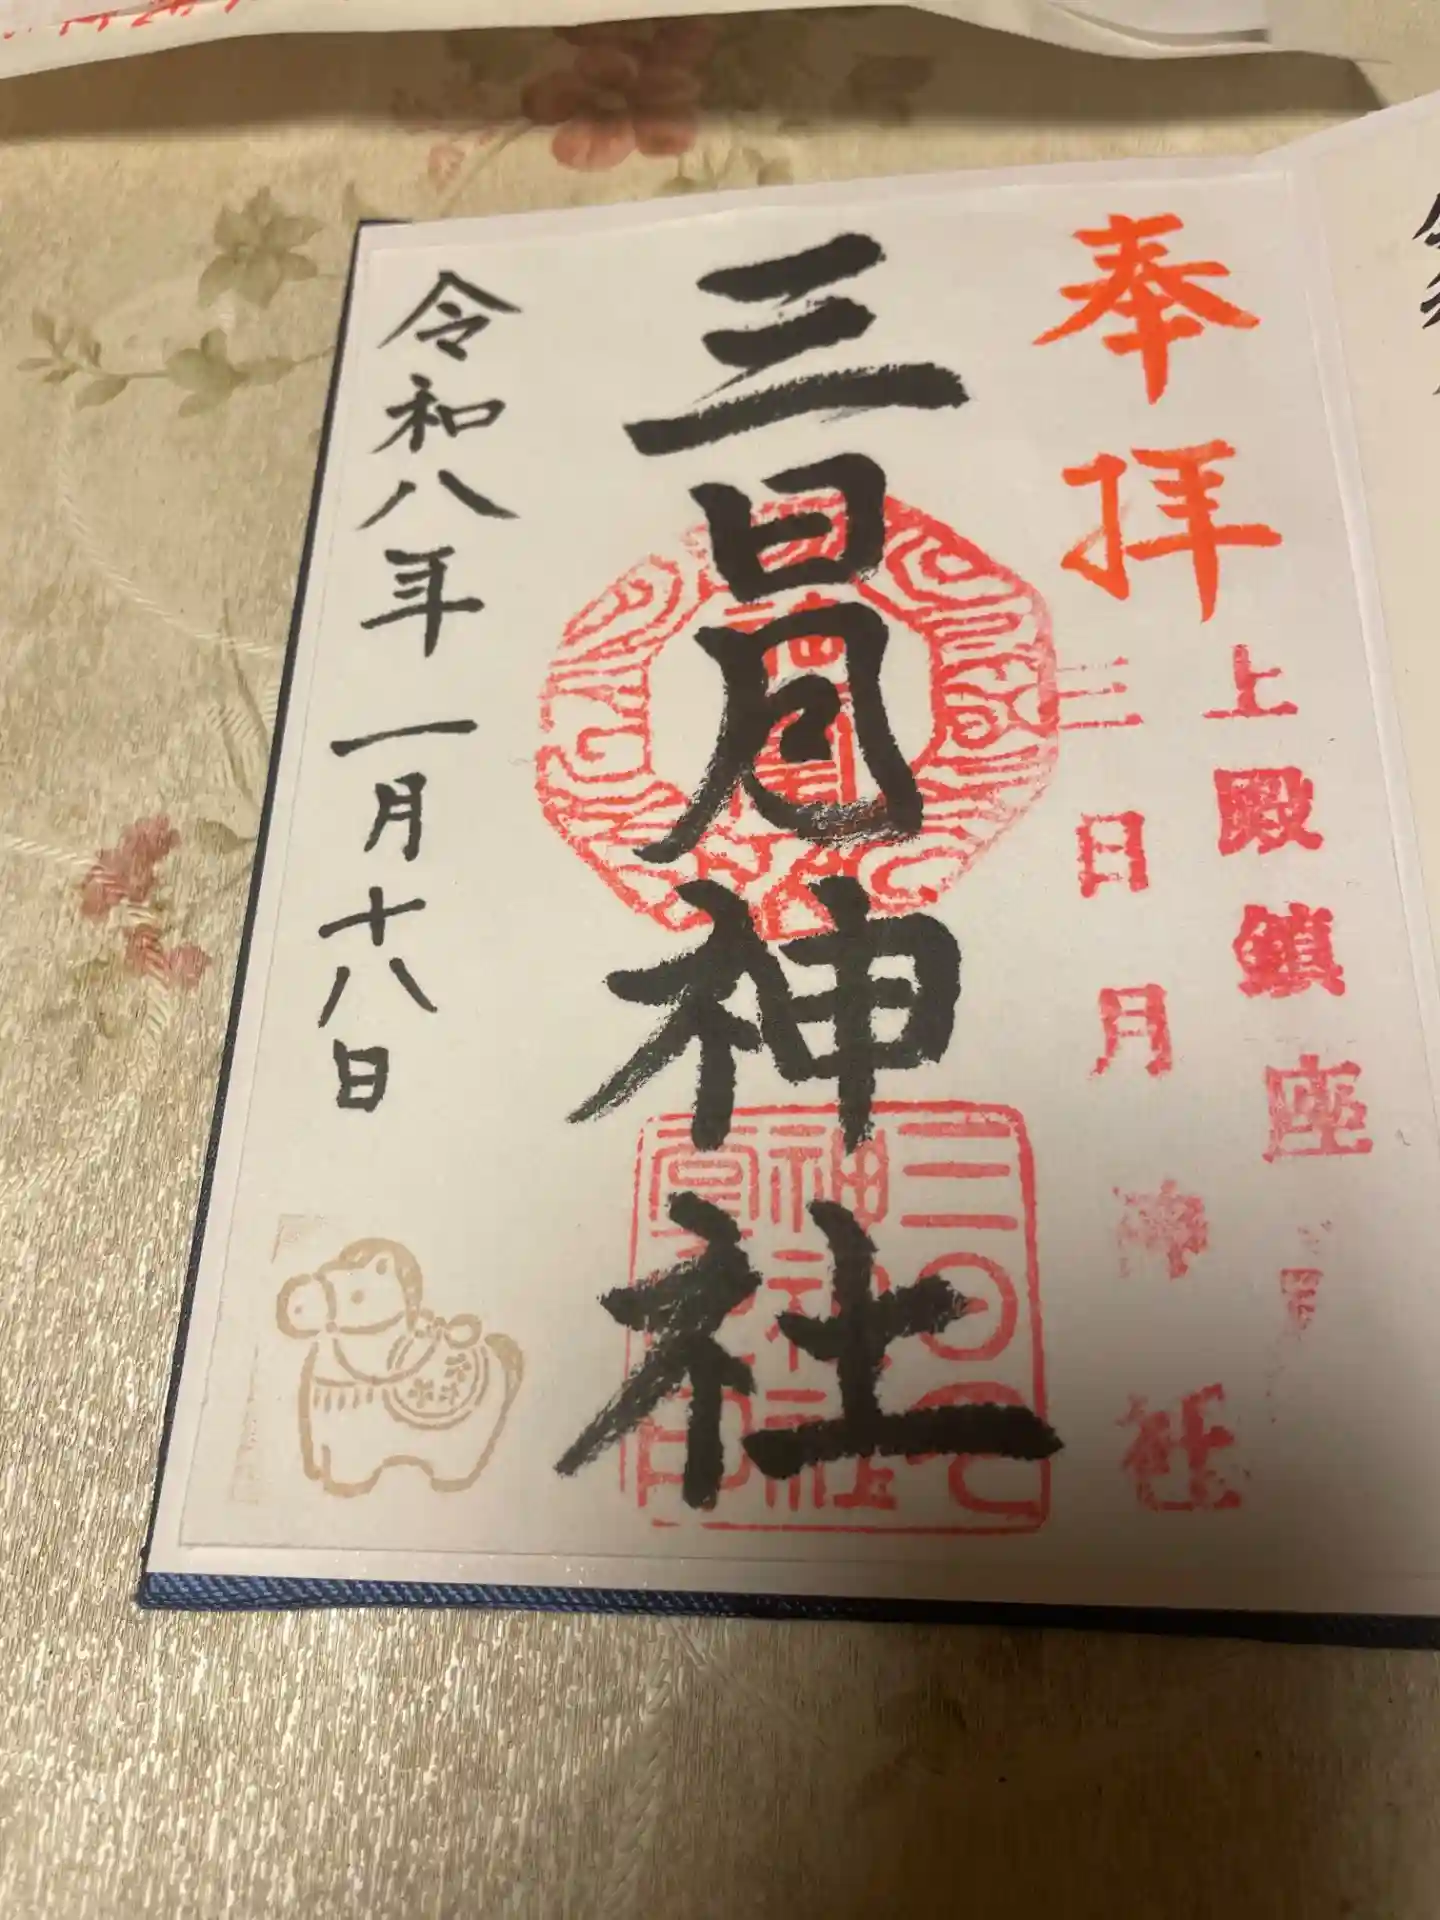 奉拝
上殿鎮座
三日月神社
三日月神社
三日月
神社
印
令和八年一月十八日